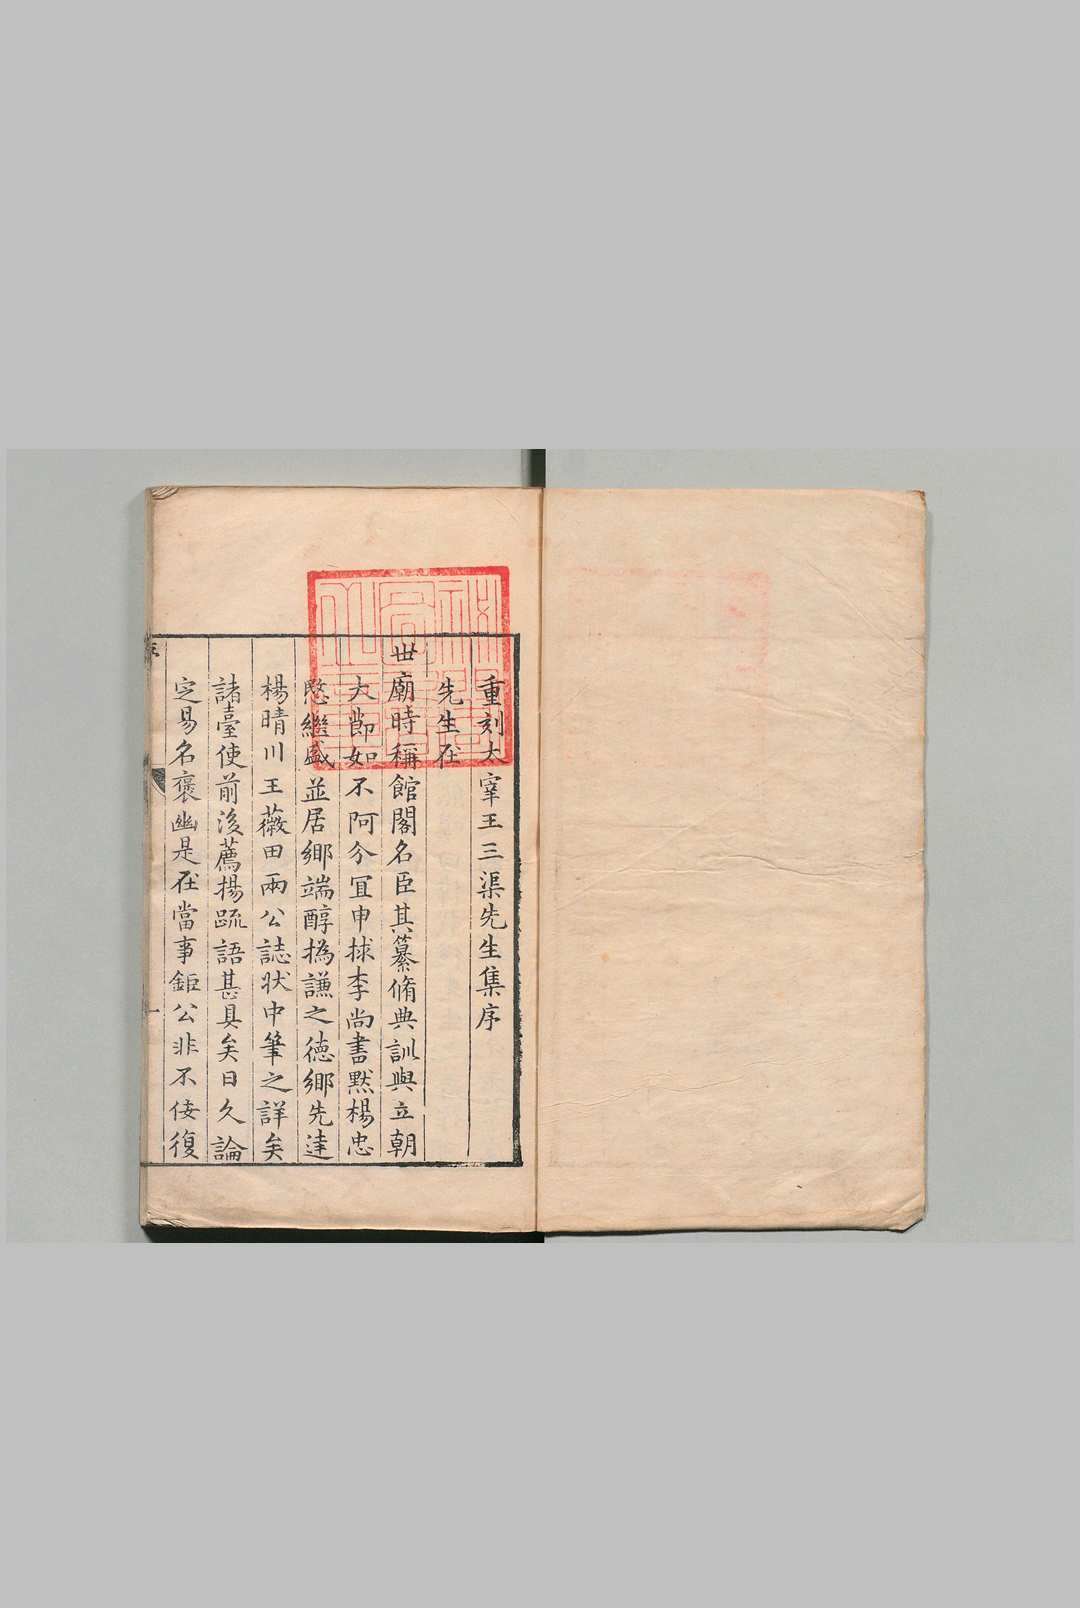 重刻太宰王三渠先生集序
先生在
世廟時稱館閣名臣其纂脩典訓與立朝
大節如不阿分冝申捄李尚書默楊忠
愍繼盛並居鄉端醇撝謙之德鄉先達
楊晴川王薇田兩公誌狀中筆之詳矣
諸臺使前後薦揚疏語甚具矣日久論
定易名褒幽是在當事鉅公非不佞復
序
一